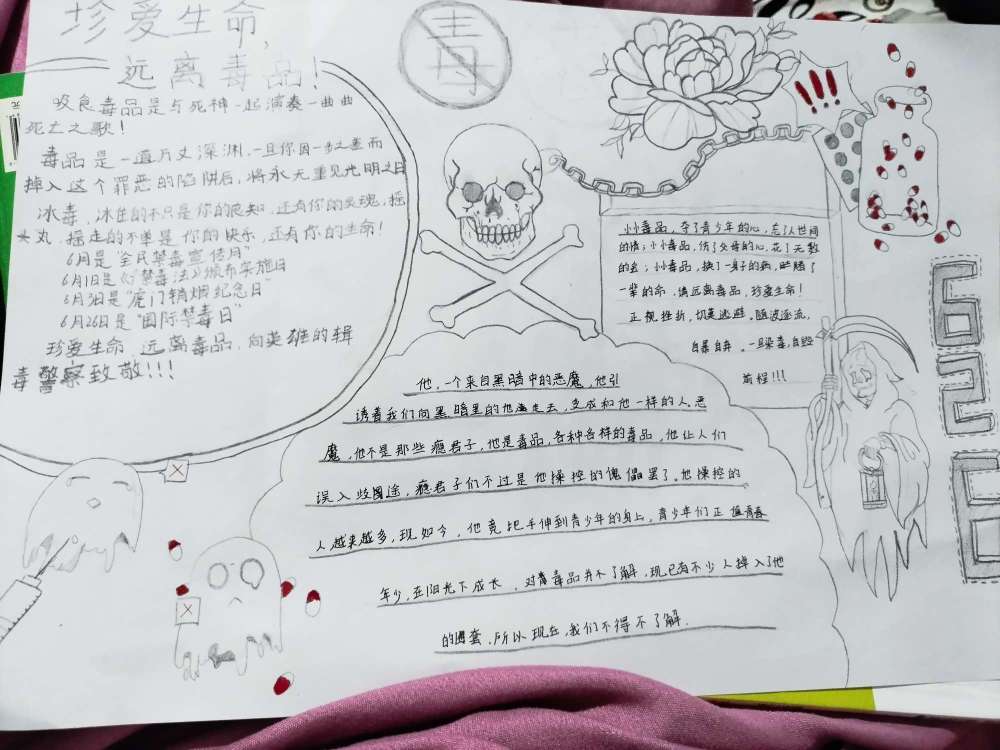 珍爱生命,
远离毒品!
毒
吸食毒品是与死神一起演奏一曲曲
死亡之歌!
毒品是一道万丈深渊,一旦你因一步之差而
掉入这个罪恶的陷阱后,将永无重见光明之日
冰毒,冰住的不只是你的良知,还有你的灵魂,摇
头丸,摇走的不单是你的快乐,还有你的生命!
6月是"全民禁毒宣传月"
6月1日是《禁毒法》颁布实施日
6月3日是"虎门销烟纪念日
6月26日是"国际禁毒日"
珍爱生命,远离毒品,向英雄的缉
毒警察致敬!!!
!!!
小小毒品,夺了青少年的心,忘了人世间
的情;小小毒品,伤了父母的心,花了无数
的金;小小毒品,换了一身子的病,赌了
一辈的命,请远离毒品,珍爱生命!
正视挫折,切莫逃避,随波逐流,
自暴自弃。一旦染毒,自毁
前程!!!
他,一个来自黑暗中的恶魔,他引
诱着我们向黑暗里的他走去,变成和他一样的人恶
魔,他不是那些瘾君子,他是毒品,各种各样的毒品,他让人们
误入歧途,瘾君子们不过是他操控的傀儡罢了。他操控的
人越来越多,现如今,他竟把手伸到青少年的身上,青少年们正值青春
年少,在阳光下成长,对毒品并不了解,现已有不少人掉入了他
的圈套,所以现在,我们不得不了解.
626